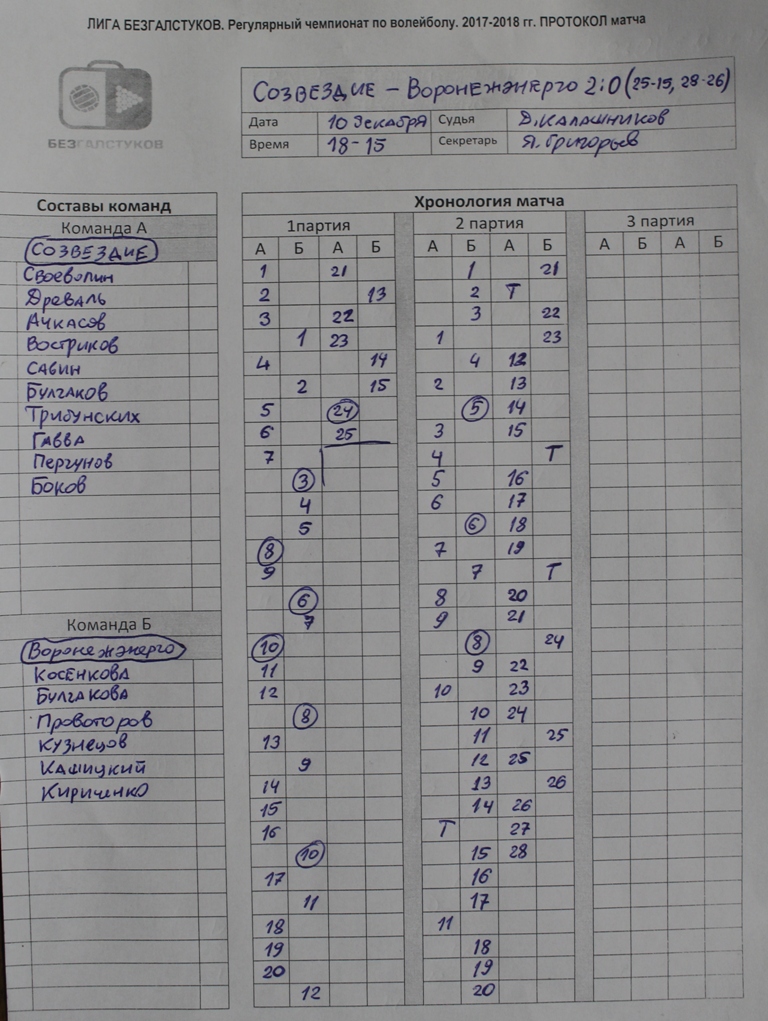 ЛИГА БЕЗГАЛСТУКОВ. Регулярный чемпионат по волейболу. 2017-2018 гг. ПРОТОКОЛ матча
БЕЗГАЛСТУКОВ
СОЗВЕЗДИЕ – ВОРОНЕЖЭНЕРГО 2:0 (25-15, 28-26)
Дата 10 декабря Судья Д. КАЛАШНИКОВ
Время 18-15 Секретарь Я. Григорьев
Составы команд
Команда А
СОЗВЕЗДИЕ
Своеволин
Древаль
Ачкасов
Востриков
Савин
Булгаков
Трибунских
Гавва
Пергунов
Боков
Команда Б
Воронежэнерго
Косенкова
Булгакова
Провоторов
Кузнецов
Кашицкий
Кириченко
Хронология матча
1партия 2 партия 3 партия
А Б А Б А Б А Б А Б А Б
1 21 1 21
2 13 2 Т
3 22 3 22
1 23 1 23
4 14 4 12
2 15 2 13
5 24 5 14
6 25 3 15
7 4 Т
3 5 16
4 6 17
5 6 18
8 7 19
9 7 Т
6 8 20
7 9 21
10 8 24
11 9 22
12 10 23
8 10 24
13 11 25
9 12 25
14 13 26
15 14 26
16 Т 27
10 15 28
17 16
11 17
18 11
19 18
20 19
12 20